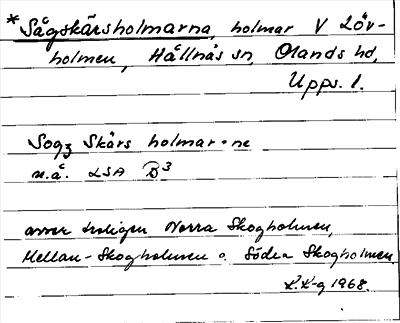 *Sågskärsholmarna, holmar V Löv-
holmen, Hållnäs sn, Olands hd,
Upps. l.
Sogz Skärs holmar=ne
u.å. LSA B3
avser troligen Norra Skogholmen,
Mellan-Skogholmen o. Södra Skogholmen
1968.